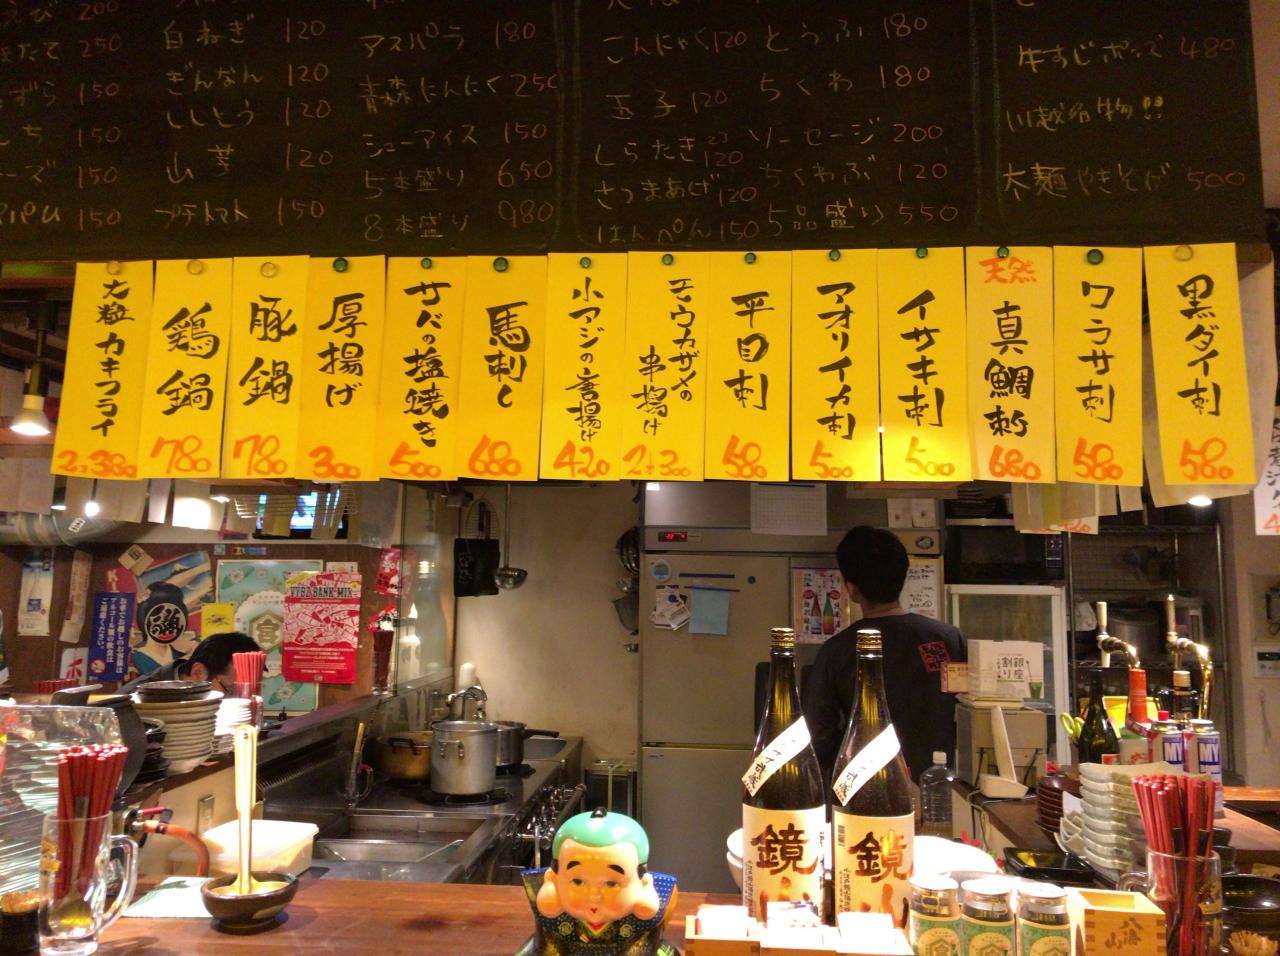 200
白ねぎ 120
アスパラ 180
こんにゃく 120
とうふ 180
牛すじポンズ 480
250
ぎんなん 120
青森にんにく 250
玉子 120
ちくわ 180
川越名物!!
150
ししとう 120
シューアイス 150
しらたき 120
ソーセージ 200
太麺やきそば 500
150
山芋 120
5本盛り 650
さつまあげ 120
ちくわぶ 120
150
プチトマト 150
8本盛り 980
はんぺん 150
5品盛り 550
150
大粒カキフライ
2コ380
鶏鍋
780
豚鍋
780
厚揚げ
300
サバの塩焼き
500
馬刺し
680
小アジの唐揚げ
420
エウカザメの
串揚げ
2コ300
平目刺
580
アオリイカ刺
500
イサキ刺
500
天然
真鯛刺
680
ワラサ刺
580
黒ダイ刺
580
VYBZ BANK MIX
お車でお越しのお客様は
アルコール類の飲食は
ご遠慮ください。
銀座
割り
鏡山
鏡山
MY
MY
八海山